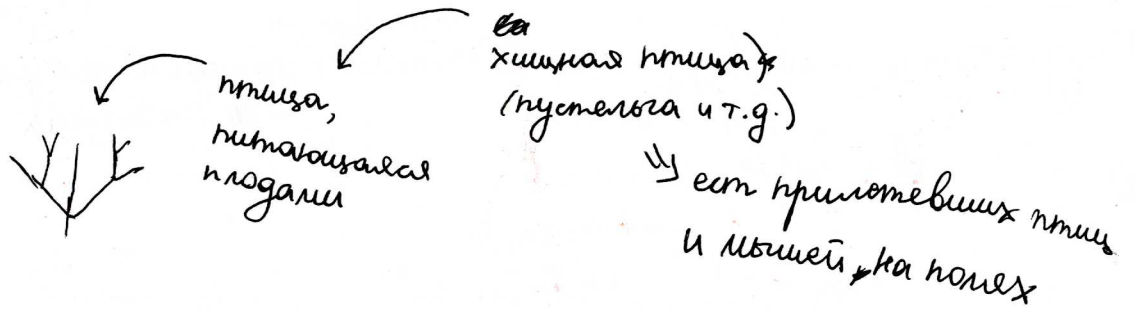 птица,
питающаяся
плодами
хищная птица)
(пустельга и т.д.)
ест прилетевших птиц
и мышей, на полях